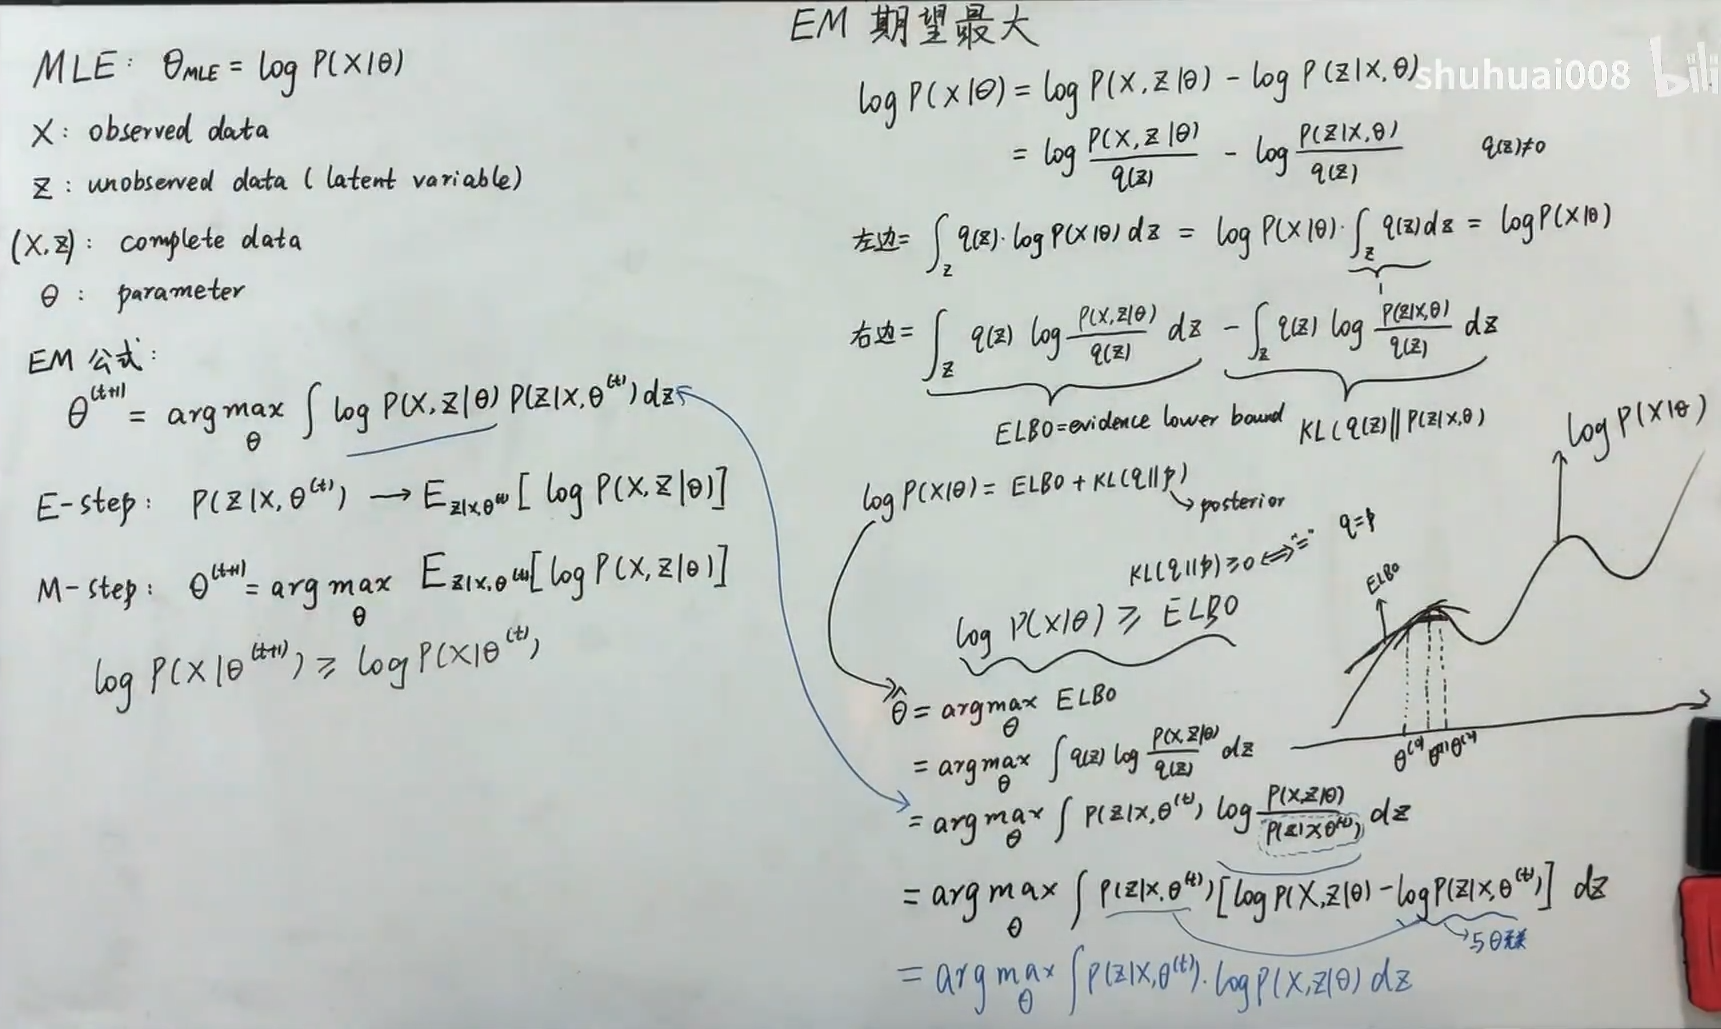 EM 期望最大
MLE: θ_MLE = log P(X|θ)
X: observed data
Z: unobserved data (latent variable)
(X,Z): complete data
θ: parameter
EM 公式:
θ^(t+1) = arg max_θ ∫ log P(X,Z|θ) P(Z|X,θ^(t)) dz
E-step: P(Z|X,θ^(t)) → E_{Z|X,θ^(t)} [log P(X,Z|θ)]
M-step: θ^(t+1) = arg max_θ E_{Z|X,θ^(t)} [log P(X,Z|θ)]
log P(X|θ^(t+1)) ≥ log P(X|θ^(t))
shuhuai008 bili
log P(X|θ) = log P(X,Z|θ) - log P(Z|X,θ)
= log P(X,Z|θ)/q(z) - log P(Z|X,θ)/q(z) q(z)≠0
左边 = ∫_z q(z)·log P(X|θ) dz = log P(X|θ)·∫_z q(z)dz = log P(X|θ)
1
右边 = ∫_z q(z) log P(X,Z|θ)/q(z) dz - ∫_z q(z) log P(Z|X,θ)/q(z) dz
ELBO=evidence lower bound KL(q(z)||P(Z|X,θ)
log P(X|θ) = ELBO + KL(q||p)
→ posterior
KL(q||p)≥0 ⟺ "=" q=p
log P(X|θ) ≥ ELBO
θ̂ = arg max_θ ELBO
= arg max_θ ∫ q(z) log P(X,Z|θ)/q(z) dz
= arg max_θ ∫ P(Z|X,θ^(t)) log P(X,Z|θ)/P(Z|Xθ^(t)) dz
= arg max_θ ∫ P(Z|X,θ^(t)) [log P(X,Z|θ) - log P(Z|X,θ^(t))] dz
→与θ无关
= arg max_θ ∫ P(Z|X,θ^(t))·log P(X,Z|θ) dz
log P(X|θ)
ELBO